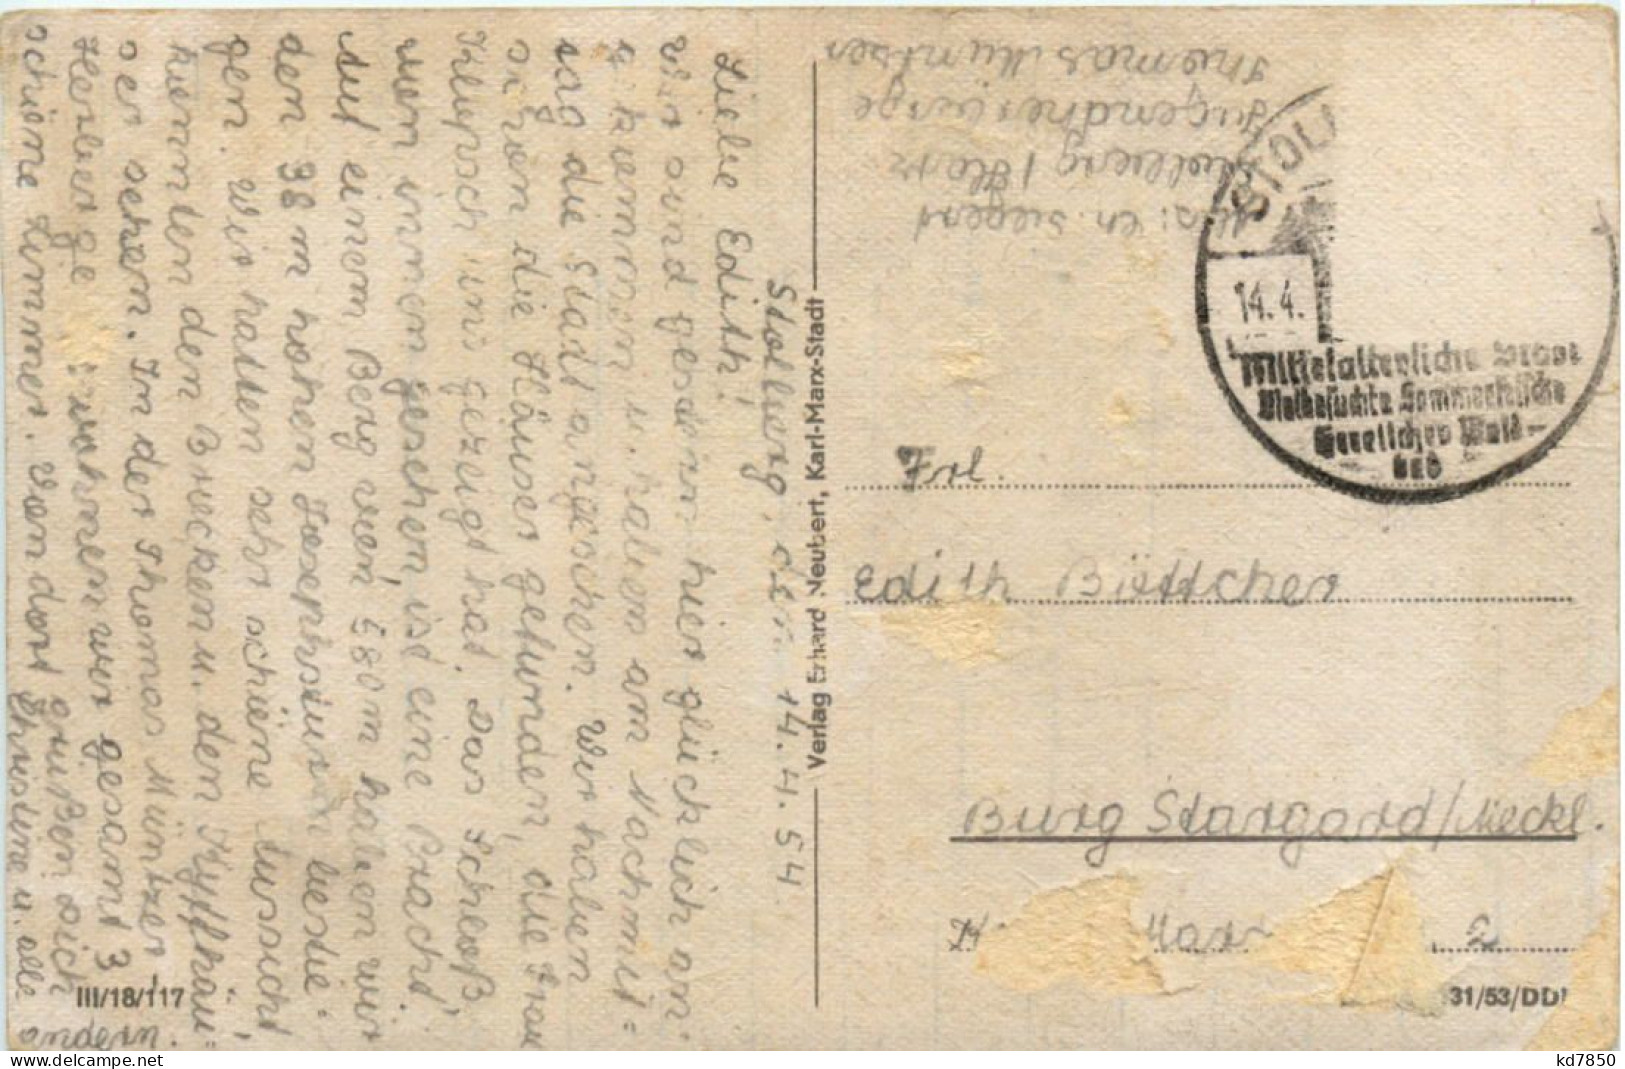 Stollberg, den 14.4.54
Liebe Edith!
Wir sind gestern hier glücklich an-
gekommen u. haben am Nachmit=
tag die Stadt angesehen. Wir haben
die Häuser gefunden, die Frau
Klupsch uns gezeigt hat. Das Schloß
von innen gesehen, ist eine Pracht.
Auf einem Berg von 580 m haben wir
den 38 m hohen Josephsturm bestie-
gen. Wir hatten sehr schöne Aussicht,
konnten den Brocken u. den Kyffhäu=
ser sehen. In der Thomas Müntzer
Herberge wohnen wir gesamt 3
schöne Zimmer. Von dort grüßen Dich
Christine u. alle
andern.
III/18/117
Verlag Erhard Neubert, Karl-Marx-Stadt
Abs: Ch. Siegert
Stolberg / Harz
Jugendherberge
Thomas Müntzer
STOL
14.4.
Mittelalterliche
Vielbesuchte Sommerfrische
Herrlicher Wald
Frl.
Edith Böttcher
Burg Stargard/Meckl.
Marx 2
31/53/DD
kd7850